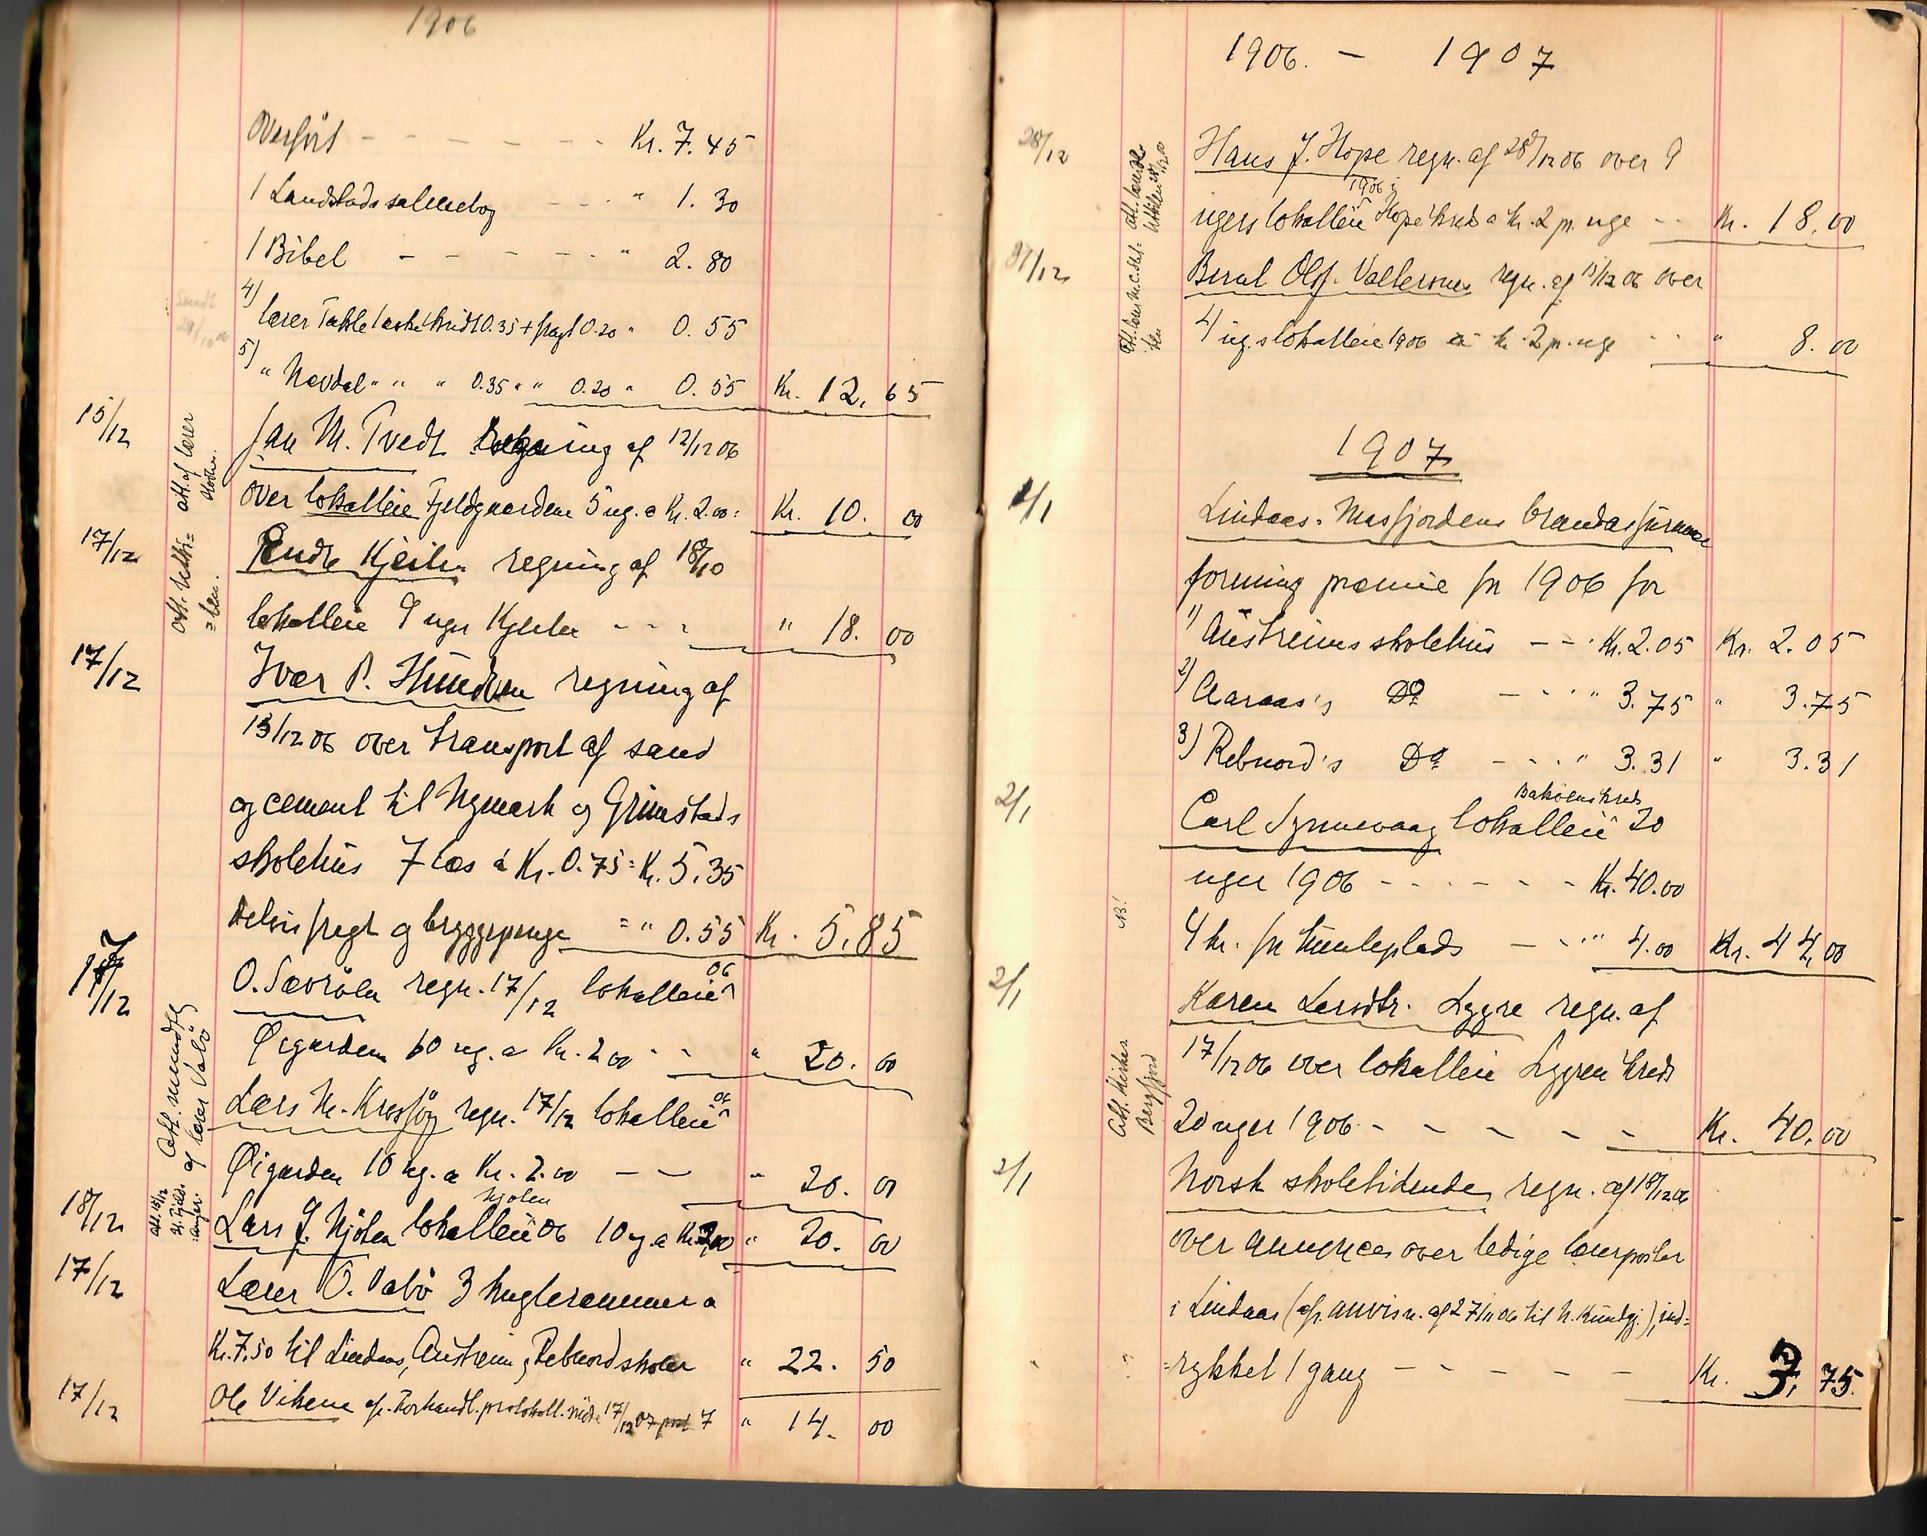 1906
Overført - - - - - - Kr. 7.45
1 Landstads salmebog - - - " 1.30
1 Bibel - - - - - - " 2.80
4) lærer Takle 1 æske kridt 0.35 + fragt 0.20 " 0.55
5) " Nævdal " " " 0.35 " " 0.20 " 0.55 Kr. 12,65
15/12 Jan M. Tvedt Regning af 12/12 06
over lokalleie Fjeldgaardene 5 ug. a Kr. 2.00: Kr. 10.00
17/12 Endre Kjeilen regning af 18/10
lokalleie 9 uger Kjeilen - - - " 18.00
17/12 Ivar P. Hundven regning af
13/12 06 over transport af sand
og cement til Nymark og Grimstads
skolehus 7 læs á Kr. 0.75 = Kr. 5,35
Delvis fragt og bryggepenge = " 0.55 Kr. 5,85
17/12 O. Sævröen regn. 17/12 lokalleie 06
Øigarden 10 ug. a Kr. 2.00 - - " 20.00
Lars N. Kr regn. 17/12 lokalleie 06
Øigarden 10 ug. a Kr. 2.00 - - " 20.00
18/12 Lars J. Njöten lokalleie Njöten 06 10 ug. a Kr. 2,00 " 20.00
17/12 Lærer O. Valö 3 kuglerammer a
Kr. 7,50 til Lindaas, Austreim, Rebnord skoler " 22.50
17/12 Ole Vikene af. Forhandl. protokoll 17/12 07 post 7 " 14.00
att. af lærer
att. mundtlig
af lærer Valö
1906. - 1907
28/12 Hans J. Hope regn. af 28/12 06 over 9
ugers lokalleie 1906 i Hope kreds a kr. 2 pr. uge - - Kr. 18,00
31/12 Bernt Olsf. Vallersnes regn. af 15/12 06 over
4 ug.s lokalleie 1906 á kr. 2 pr. uge " 8.00
1907
1/1 Lindaas-Masfjordens brandassurance
forening præmie for 1906 for
1) Austreims skolehus - - - Kr. 2.05 Kr. 2.05
2) Aaraas's Do - - - " 3.75 " 3.75
3) Rebnord's Do - - - " 3.31 " 3.31
2/1 Carl Synnevaag lokalleie Baköens kreds 20
uger 1906 - - - - - - Kr. 40.00
4 kr. for tumleplads - - - " 4.00 Kr. 44,00
NB!
2/1 Karen Larsdtr. Lygre regn. af
17/12 06 over lokalleie Lygren kreds
20 uger 1906 - - - - - Kr. 40,00
Att. kirkes.
Bergfjord
2/1 Norsk skoletidende, regn. af 18/12 06
over annonces over ledige lærerposter
i Lindaas (af. anvisn. af 27/11 06 til N. Kundgj.), ind=
=rykket 1 gang - - - - - Kr. 3,75.